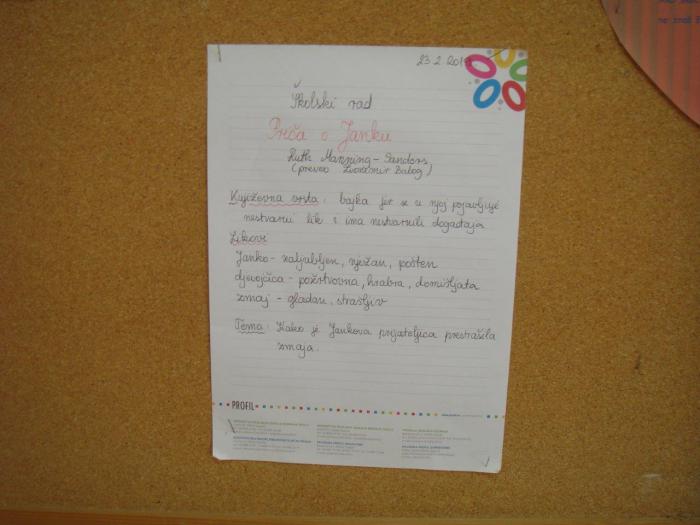 23. 2.
Školski rad
Priča o Janku
Ruth Manning-Sanders
(preveo Zvonimir Balog)
Književna vrsta: bajka jer se u njoj pojavljuje
nestvarni lik i ima nestvarnih događaja
Likovi
Janko - zaljubljen, nježan, pošten
djevojčica - požrtvovna, hrabra, domišljata
zmaj - gladan, strašljiv
Tema: Kako je Jankova prijateljica prestrašila
zmaja.
PROFIL
ne znaš